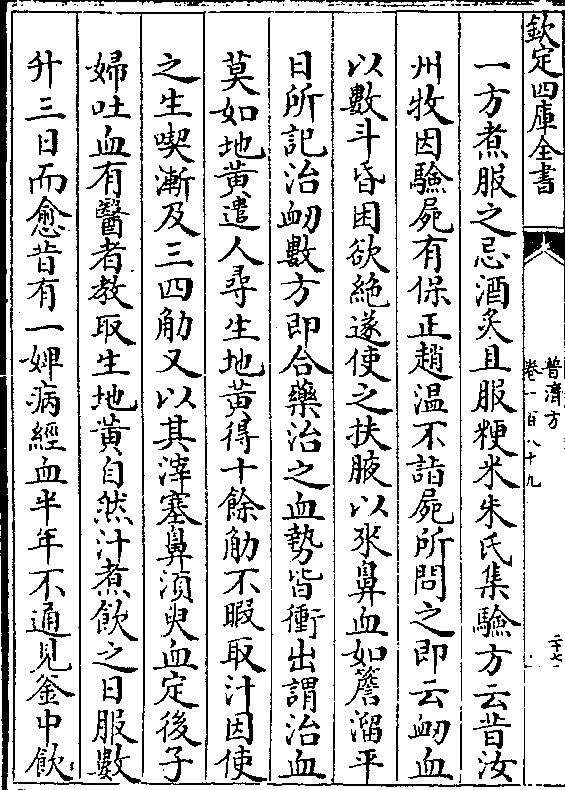 欽定四庫全書
普濟方
卷一百八十九
二十七
一方煮服之忌酒炙且服粳米朱氏集驗方云昔汝
州牧因驗屍有保正趙溫不詣屍所問之即云衂血
以數斗昏困欲絶遂使之扶腋以來鼻血如簷溜平
日所記治衂數方即合藥治之血勢皆衝出謂治血
莫如地黄遣人尋生地黄得十餘觔不暇取汁因使
之生喫漸及三四觔又以其滓塞鼻須臾血定後子
婦吐血有醫者教取生地黄自然汁煮飲之日服數
升三日而愈昔有一婢病經血半年不通見釜中飲